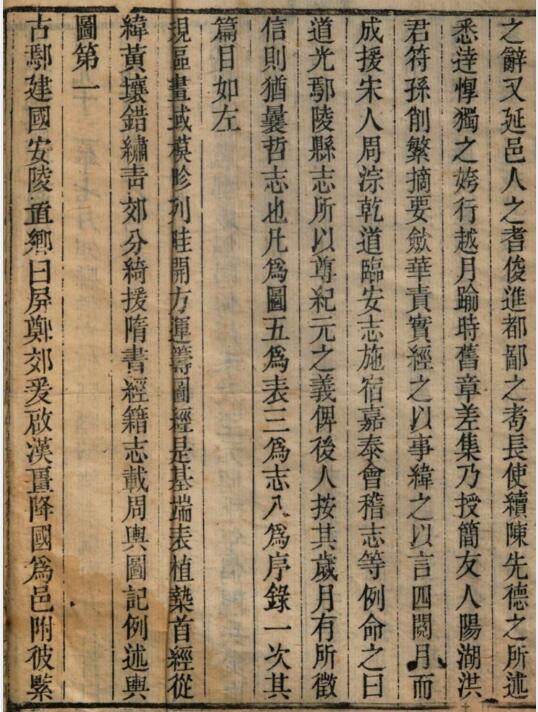 之辭又延邑人之耆俊進都鄙之耇長使續陳先德之所述
悉達惸獨之姱行越月踰時舊章差集乃授簡友人陽湖洪
君符孫削繁摘要斂華責實經之以事緯之以言四閱月而
成援宋人周淙乾道臨安志施宿嘉泰會稽志等例命之曰
道光鄢陵縣志所以尊紀元之義俾後人按其歲月有所徵
信則猶曩哲志也凡爲圖五爲表三爲志八爲序錄一次其
篇目如左
規區畫域模畛列畦開方運籌圖經是基端表植槷首經從
緯黃壤錯繡靑郊分綺援隋書經籍志載周輿圖記例述輿
圖第一
古鄢建國安陵啚鄕曰屏鄭郊爰啟漢畺降國爲邑附彼縏